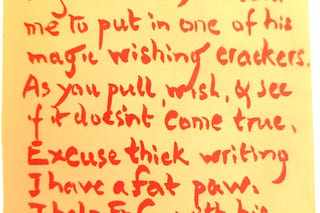 me to put in one of his
magic wishing crackers.
As you pull, wish, & see
if it doesnt come true.
Excuse thick writing
I have a fat paw.
I help F.C. with his